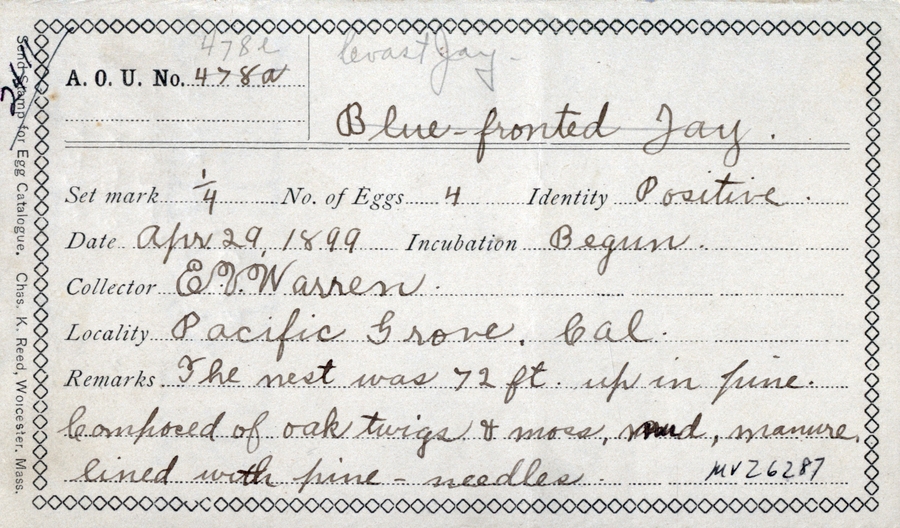 478e
Coast Jay.
A. O. U. No. 478a
Blue-fronted Jay.
Set mark 1/4 No. of Eggs 4 Identity Positive.
Date Apr 29, 1899 Incubation Begun.
Collector E. V. Warren.
Locality Pacific Grove, Cal.
Remarks The nest was 72 ft. up in pine.
Composed of oak twigs & moss, mud, manure,
lined with pine-needles.
MVZ 6287
Send Stamp for Egg Catalogue. Chas. K. Reed, Worcester, Mass.